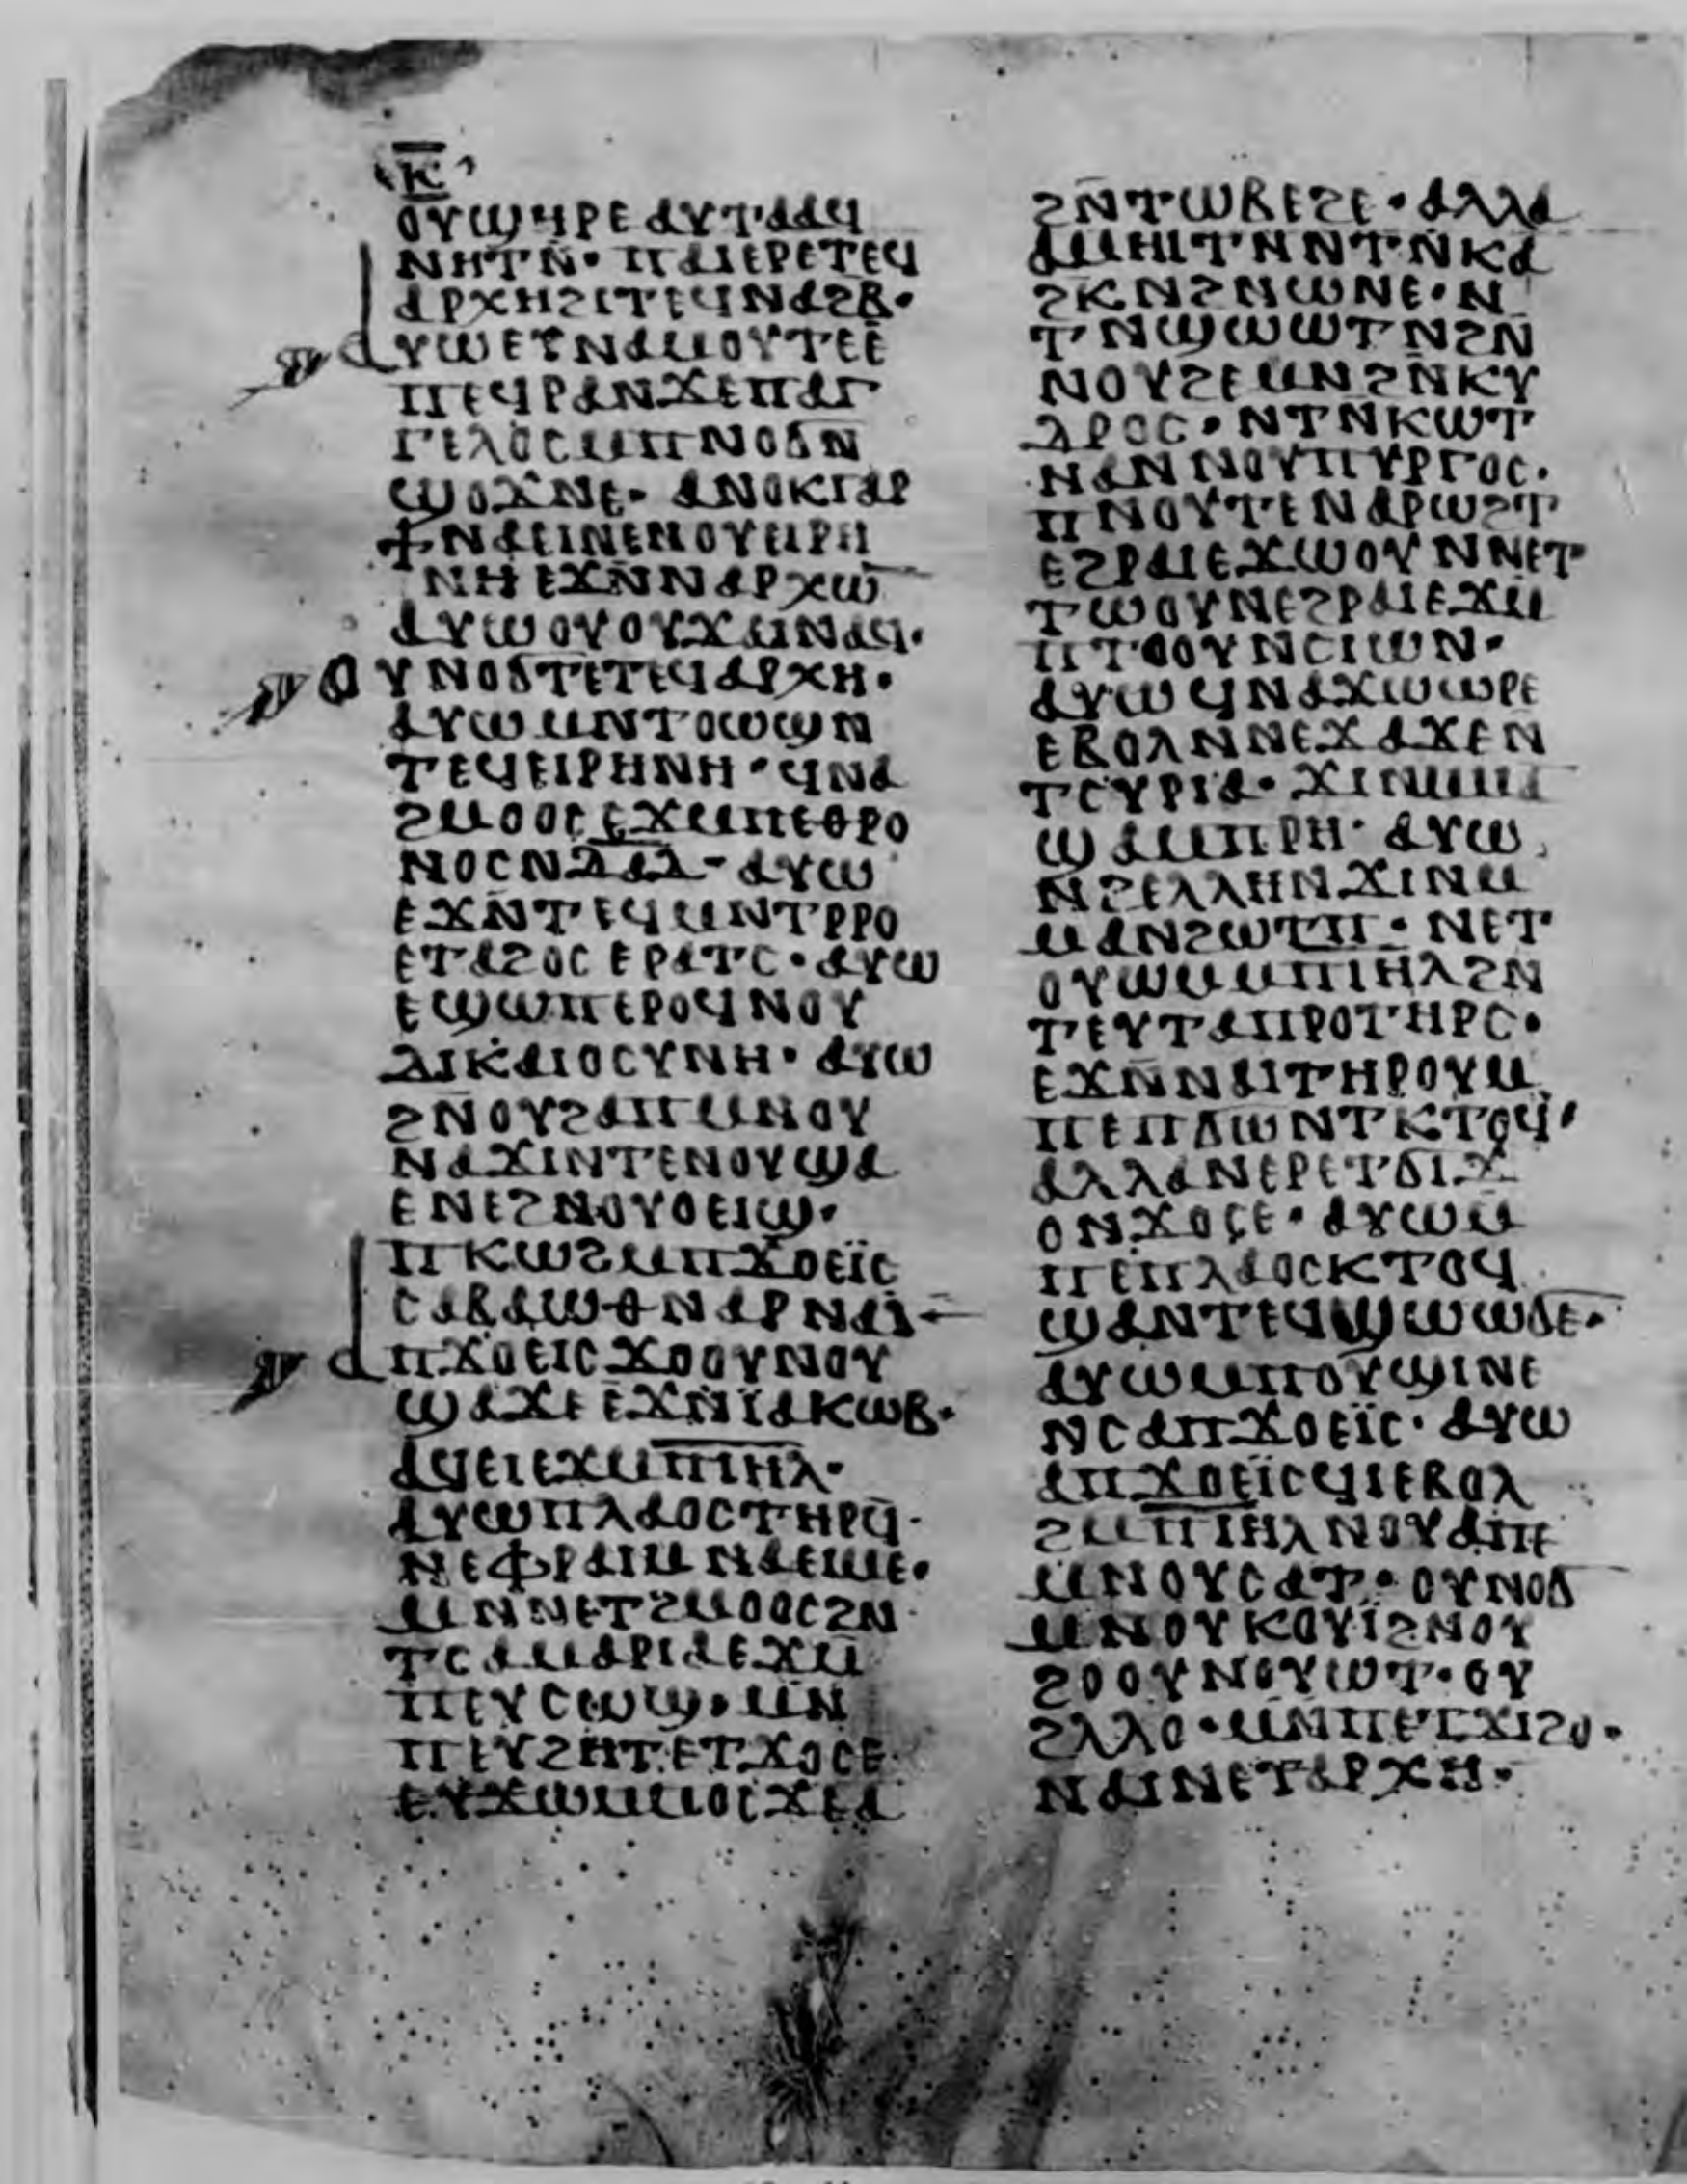 ⲕ̅
ⲟⲩϣⲏⲣⲉ ⲁⲩⲧⲁⲁϥ
ⲛⲏⲧⲛ̅· ⲡⲁⲓⲉⲣⲉⲧⲉϥ
ⲁⲣⲭⲏϩⲓⲧⲉϥⲛⲁϩⲃ·
ⲁⲩⲱⲉⲧⲛⲁⲙⲟⲩⲧⲉⲉ
ⲡⲉϥⲣⲁⲛϫⲉⲡⲁⲅ
ⲅⲉⲗⲟⲥⲙⲡⲛⲟϭⲛ
ϣⲟϫⲛⲉ· ⲁⲛⲟⲕⲅⲁⲣ
ϯⲛⲁⲉⲓⲛⲉⲛⲟⲩⲉⲓⲣⲏ
ⲛⲏ ⲉϫⲛ̅ⲛⲁⲣⲭⲱ̅
ⲁⲩⲱⲟⲩⲟⲩϫⲁⲓⲛⲁϥ·
ⲟⲩⲛⲟϭⲧⲉⲧⲉϥⲁⲣⲭⲏ·
ⲁⲩⲱⲙⲛⲧⲟϣⲱⲛ
ⲧⲉϥⲉⲓⲣⲏⲛⲏ·ϥⲛⲁ
ϩⲙⲟⲟⲥⲉϫⲙⲡⲉⲑⲣⲟ
ⲛⲟⲥⲛⲇⲁⲇ̅· ⲁⲩⲱ
ⲉϫⲛ̅ⲧⲉϥⲙⲛⲧⲣⲣⲟ
ⲉⲧⲁϩⲟⲥ ⲉⲣⲁⲧⲥ· ⲁⲩⲱ
ⲉϣⲱⲡⲉⲣⲟϥⲛⲟⲩ
ⲇⲓⲕⲁⲓⲟⲥⲩⲛⲏ· ⲁⲩⲱ
ϩⲛⲟⲩϩⲁⲡⲙⲛⲟⲩ
ⲛⲁϫⲓⲛⲧⲉⲛⲟⲩϣⲁ
ⲉⲛⲉϩⲛⲟⲩⲟⲉⲓϣ·
ⲡⲕⲱϩⲙⲡϫⲟⲉⲓ̈ⲥ
ⲥⲁⲃⲁⲱⲑⲛⲁⲣⲛⲁⲓ
ⲁⲡϫⲟⲉⲓⲥϫⲟⲟⲩⲛⲟⲩ
ϣⲁϫⲉⲉϫⲛ̅ⲓ̈ⲁⲕⲱⲃ·
ⲁϥⲉⲓⲉϫⲙⲡⲓ̅ⲏ̅ⲗ̅·
ⲁⲩⲱⲡⲗⲁⲟⲥⲧⲏⲣϥ̅·
ⲛⲉⲫⲣⲁⲓⲙⲛⲁⲉⲓⲙⲉ·
ⲙⲛⲛⲉⲧϩⲙⲟⲟⲥϩⲛ
ⲧⲥⲁⲙⲁⲣⲓⲁⲉϫⲙ̅
ⲡⲉⲩⲥⲱϣ· ⲙⲛ
ⲡⲉⲩϩⲏⲧ.ⲉⲧϫⲟⲥⲉ·
ⲉⲩϫⲱⲙⲙⲟⲥϫⲉⲁ
ϩⲛ̅ⲧⲱⲃⲉϩⲉ· ⲁⲗⲗⲁ
ⲁⲙⲏⲓⲧⲛⲛⲧⲛ̅ⲕⲁ
ϩⲕⲛϩⲛⲱⲛⲉ·ⲛ
ⲧⲛϣⲱⲱⲧⲛϩⲛ̅
ⲛⲟⲩϩⲉⲙⲛϩⲛ̅ⲕⲩ
ⲇⲣⲟⲥ· ⲛⲧⲛⲕⲱⲧ
ⲛⲁⲛⲛⲟⲩⲡⲩⲣⲅⲟⲥ·
ⲡⲛⲟⲩⲧⲉⲛⲁⲣⲱϩⲧ
ⲉϩⲣⲁⲓⲉϫⲱⲟⲩⲛⲛⲉⲧ
ⲧⲱⲟⲩⲛⲉϩⲣⲁⲓⲉϫⲙ̅
ⲡⲧⲟⲟⲩⲛⲥⲓⲱⲛ·
ⲁⲩⲱϥⲛⲁϫⲱⲱⲣⲉ
ⲉⲃⲟⲗⲛⲛⲉϫⲁϫⲉⲛ
ⲧⲥⲩⲣⲓⲁ· ϫⲓⲛⲙⲙⲁ
ϣⲁⲙⲡⲣⲏ· ⲁⲩⲱ
ⲛϩⲉⲗⲗⲏⲛϫⲓⲛⲙ
ⲙⲁⲛϩⲱⲧⲡ· ⲛⲉⲧ
ⲟⲩⲱⲙⲙⲡⲓⲏⲗϩⲛ
ⲧⲉⲩⲧⲁⲡⲣⲟⲧⲏⲣⲥ·
ⲉϫⲛ̅ⲛⲁⲓⲧⲏⲣⲟⲩⲙ
ⲡⲉⲡϭⲱⲛⲧⲕⲧⲟϥ·
ⲁⲗⲗⲁⲛⲉⲣⲉⲧϭⲓϫ
ⲟⲛϫⲟⲥⲉ· ⲁⲩⲱⲙ̅
ⲡⲉⲡⲗⲁⲟⲥⲕⲧⲟϥ
ϣⲁⲛⲧⲉϥϣⲱⲱϭⲉ·
ⲁⲩⲱⲙⲡⲟⲩϣⲓⲛⲉ
ⲛⲥⲁⲡϫⲟⲉⲓ̈ⲥ· ⲁⲩⲱ
ⲁⲡϫⲟⲉⲓ̈ⲥϥⲓⲉⲃⲟⲗ
ϩⲙⲡⲓ̅ⲏ̅ⲗ̅ⲛⲟⲩⲁⲡⲉ
ⲙⲛⲟⲩⲥⲁⲧ· ⲟⲩⲛⲟϭ
ⲙⲛⲟⲩⲕⲟⲩⲓ̈ϩⲛⲟⲩ
ϩⲟⲟⲩⲛⲟⲩⲱⲧ· ⲟⲩ
ϩⲗⲗⲟ· ⲙⲛⲡⲉⲧϫⲓϩⲟ·
ⲛⲁⲓⲛⲉⲧⲁⲣⲭⲏ·